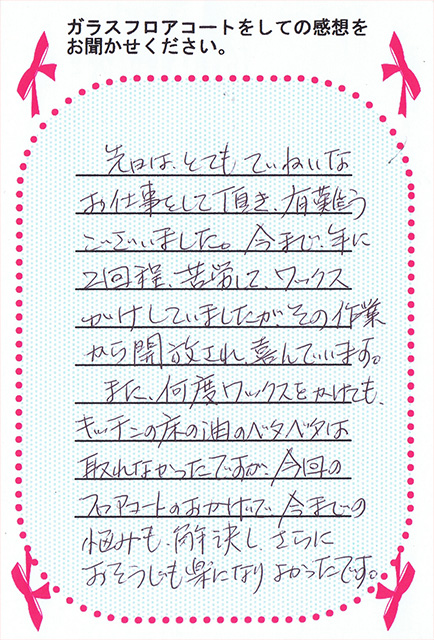 ガラスフロアコートをしての感想を
お聞かせください。
先日は、とても ていねいな
お仕事をして頂き、有難う
ございました。今まで、年に
2回程、苦労して、ワックス
がけしていましたが、その作業
から開放され、喜んでいます。
また、何度ワックスをかけても、
キッチンの床の油のベタベタは
取れなかったですが、今回の
フロアコートのおかげで、今までの
悩みも、解決し、さらに
おそうじも楽になり よかったです。